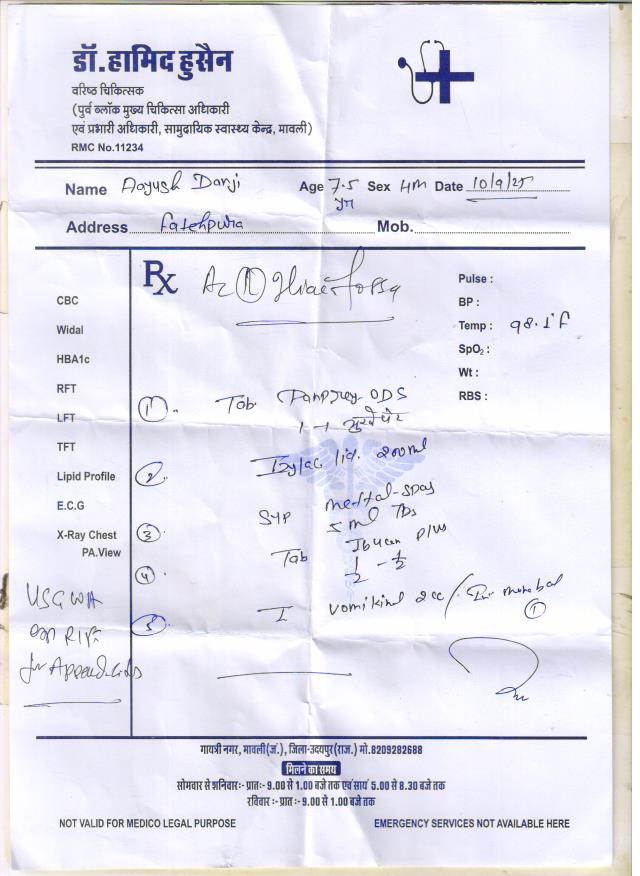 डॉ.हामिद हुसैन
वरिष्ठ चिकित्सक
(पुर्व ब्लॉक मुख्य चिकित्सा अधिकारी
एवं प्रभारी अधिकारी, सामुदायिक स्वास्थ्य केन्द्र, मावली)
RMC No.11234
Name Aayush Darji Age 7.5 yr Sex Date 10/9/25
Address Fatehpura Mob.
Rx
Ac (R) Iliac fossa
Pulse :
BP :
Temp : 98.1°F
SpO2 :
Wt :
RBS :
CBC
Widal
HBA1c
RFT
LFT
TFT
Lipid Profile
E.C.G
X-Ray Chest
PA.View
USG WA
for Appendicitis
① Tab ODS
1 - 1
② liq. 200ml
③ Syp spas
5 ml TDS
④ Tab Plus
1/2 - 1/2
⑤ I vomikind 2cc /
①
गायत्री नगर, मावली(जं.), जिला-उदयपुर(राज.) मो.8209282688
मिलने का समय
सोमवार से शनिवार:- प्रातः- 9.00 से 1.00 बजे तक एवं सायं 5.00 से 8.30 बजे तक
रविवार :- प्रात :- 9.00 से 1.00 बजे तक
NOT VALID FOR MEDICO LEGAL PURPOSE
EMERGENCY SERVICES NOT AVAILABLE HERE